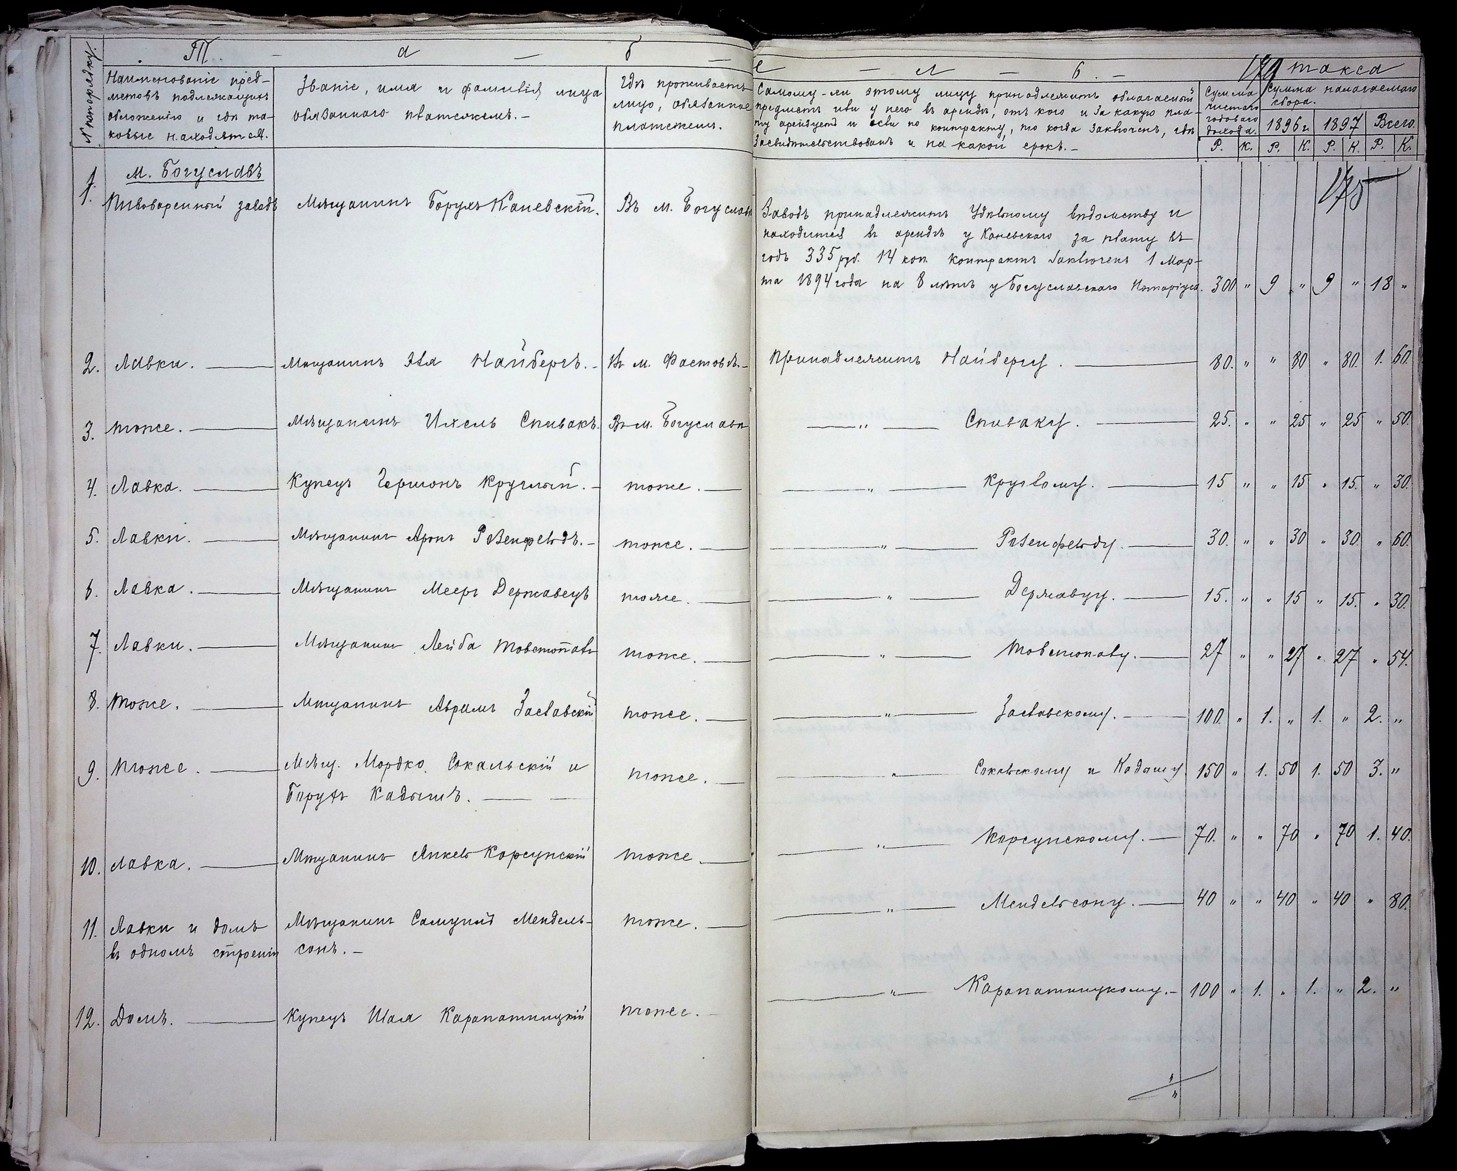 Т — а — б — е — л — ь. —
179 такса
№ по порядку.
Наименованіе пред-
метовъ подлежащихъ
обложенію и гдѣ та-
ковые находятся.
Званіе, имя и фамилія лица
обязаннаго платежемъ. —
Гдѣ проживаетъ
лицо, обязанное
платежемъ.
Самому-ли этому лицу принадлежитъ облагаемый
предметъ или у него въ арендѣ, отъ кого и за какую пла-
ту арендуетъ и если по контракту, то когда заключенъ, гдѣ
засвидѣтельствованъ и на какой срокъ. —
Сумма
чистаго
годоваго
дохода.
Сумма налагаемаго
сбора.
1896 г. 1897 Всего.
Р. К. Р. К. Р. К. Р. К.
175
м. Богуславъ
1. Пивоваренный заводъ Мѣщанинъ Борухъ Каневскій. Въ м. Богуславѣ
Заводъ принадлежитъ Удѣльному вѣдомству и
находится въ арендѣ у Каневскаго за плату въ
годъ 335 руб. 14 коп. контрактъ заключенъ 1 Мар-
та 1894 года на 8 лѣтъ у Богуславскаго Нотаріуса. 300 „ 9 „ 9 „ 18 „
2. Лавки. — Мѣщанинъ Эля Найбергъ. — Въ м. Фастовѣ. — Принадлежитъ Найбергу. — 80. „ „ 80 „ 80. 1. 60.
3. тоже. — Мѣщанинъ Ихель Спивакъ. Въ м. Богуславѣ — „ — Спиваку. — 25. „ „ 25 „ 25 „ 50.
4. Лавка. — Купецъ Гершонъ Круглый. — тоже. — „ — Круглому. — 15 „ „ 15 „ 15. „ 30.
5. Лавки. — Мѣщанинъ Аронъ Розенфельдъ. — тоже. — „ — Розенфельду. — 30. „ „ 30 „ 30 „ 60.
6. Лавка. — Мѣщанинъ Мееръ Державецъ тоже. — „ — Державцу. — 15. „ „ 15 „ 15. „ 30.
7. Лавки. — Мѣщанинъ Лейба Товстопавъ тоже. — „ — Товстопаву. — 27 „ „ 27 „ 27 „ 54.
8. тоже. — Мѣщанинъ Аврамъ Заславскій тоже. — „ — Заславскому. — 100. „ 1. „ 1. „ 2. „
9. тоже. — Мѣщ. Мордко Сокальскій и тоже. — „ — Сокальскому и Кадышу 150 „ 1. 50 1. 50 3. „
Борухъ Кадышъ. —
10. Лавка. — Мѣщанинъ Янкель Корсунскій тоже. — „ — Корсунскому. — 70. „ „ 70 „ 70 1. 40.
11. Лавки и домъ Мѣщанинъ Самуилъ Мендель- тоже. — „ — Мендельсону. — 40 „ „ 40 „ 40 „ 80.
въ одномъ строеніи сонъ. —
12. Домъ. — Купецъ Шая Карапатницкій тоже. — „ — Карапатницкому. — 100 „ 1. „ 1. „ 2. „